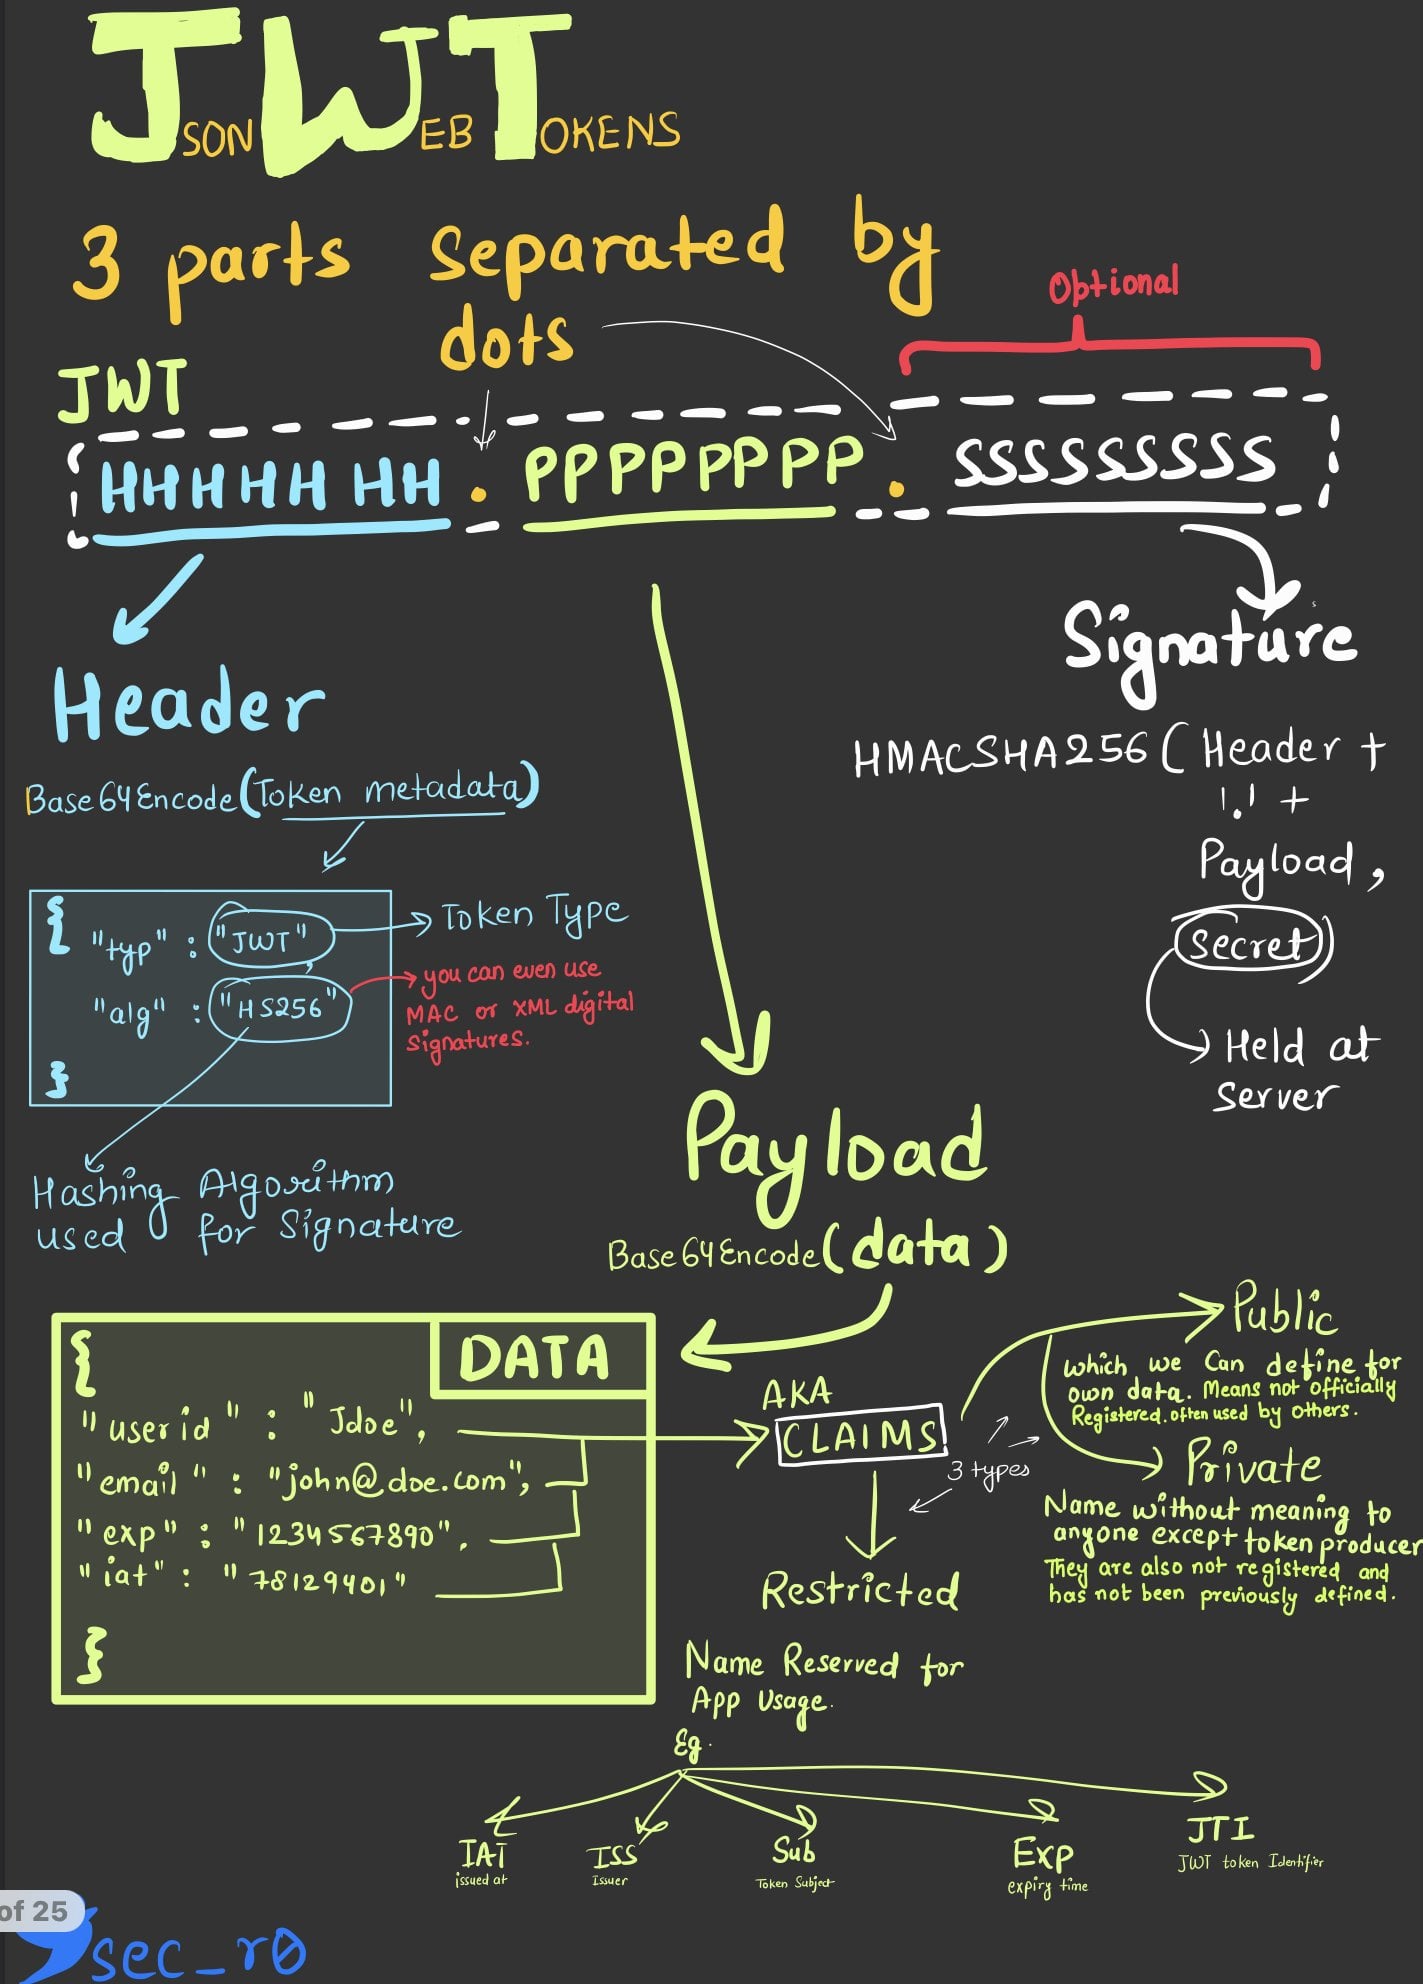 JSON WEB TOKENS
3 parts separated by
dots
Optional
JWT
HHHHHHH . PPPPPPPP . SSSSSSSSS
Header
Base64Encode(Token metadata)
{
"typ" : "JWT",
"alg" : "HS256"
}
Token Type
you can even use
MAC or XML digital
signatures.
Hashing Algorithm
used for Signature
Signature
HMACSHA256(Header +
'.' +
Payload,
secret)
Held at
server
Payload
Base64Encode(data)
DATA
{
"userid" : "Jdoe",
"email" : "john@doe.com",
"exp" : "1234567890".
"iat" : "78129401"
}
AKA
CLAIMS
3 types
Public
which we Can define for
own data. Means not officially
Registered. often used by others.
Private
Name without meaning to
anyone except token producer
They are also not registered and
has not been previously defined.
Restricted
Name Reserved for
App Usage.
Eg.
IAT
issued at
ISS
Issuer
Sub
Token Subject
Exp
expiry time
JTI
JWT token Identifier
of 25
sec_r0